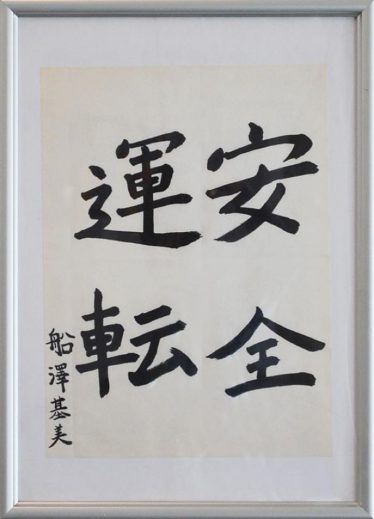 安全
運転
船澤基美